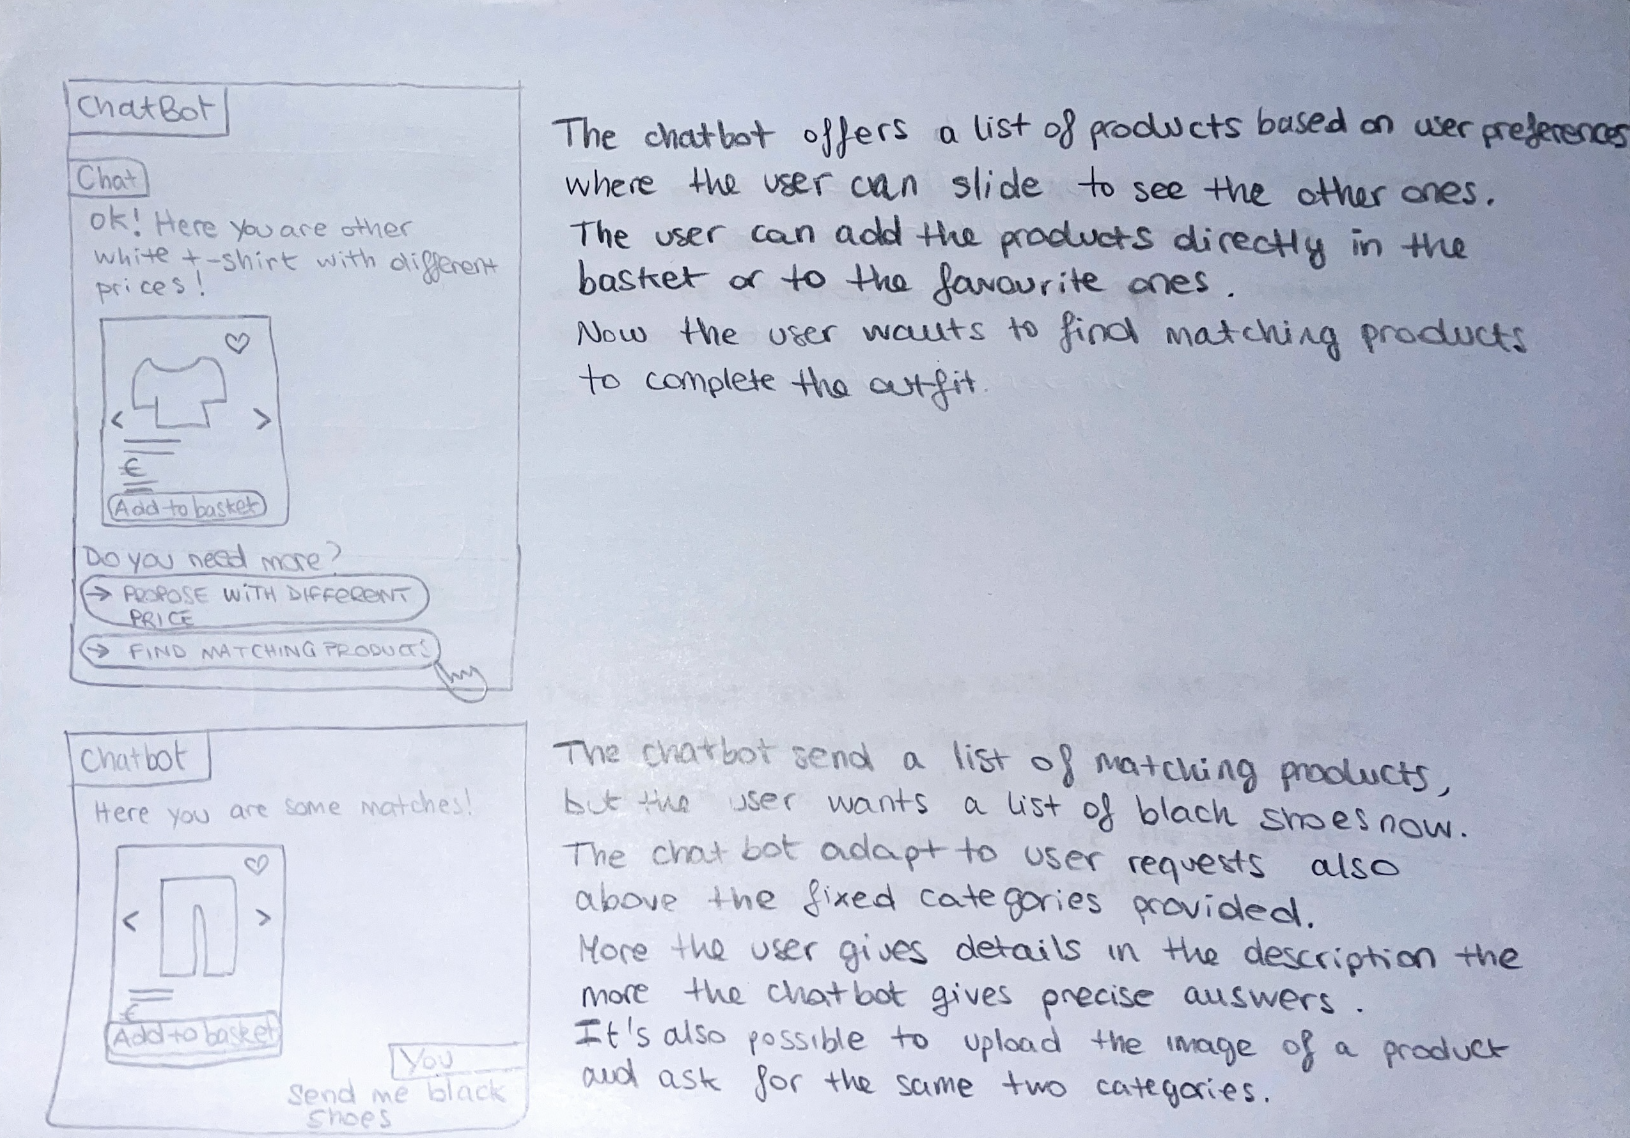 ChatBot
Chat
OK! Here you are other
white t-shirt with different
prices!
♡
< >
€
Add to basket
Do you need more?
→ PROPOSE WITH DIFFERENT
PRICE
→ FIND MATCHING PRODUCTS
The chatbot offers a list of products based on user preferences
where the user can slide to see the other ones.
The user can add the products directly in the
basket or to the favourite ones.
Now the user wants to find matching products
to complete the outfit.
Chatbot
Here you are some matches!
♡
< >
€
Add to basket
You
Send me black
shoes
The chatbot send a list of matching products,
but the user wants a list of black shoes now.
The chat bot adapt to user requests also
above the fixed categories provided.
More the user gives details in the description the
more the chatbot gives precise answers.
It's also possible to upload the image of a product
and ask for the same two categories.